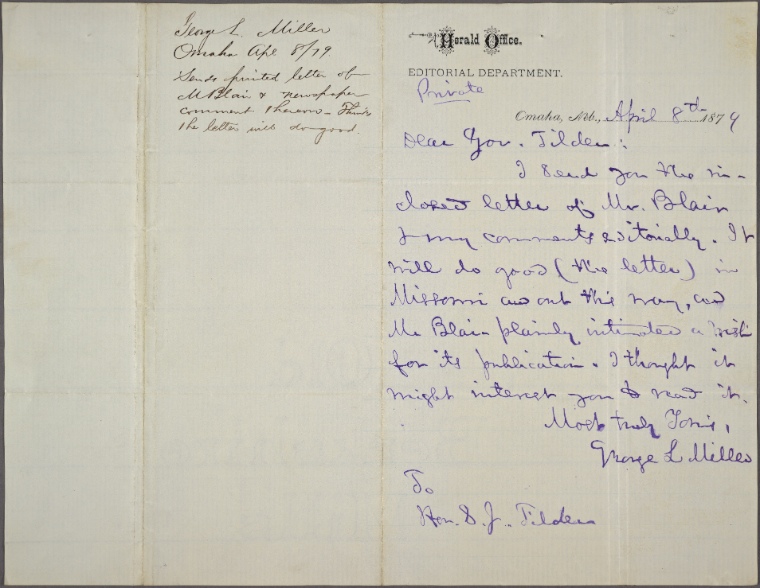 George L. Miller
Omaha Apl 8/79.
Sends printed letter of
M Blair & newspaper
comment thereon – Thinks
the letter will do good.
Herald Office.
EDITORIAL DEPARTMENT.
Private
Omaha, Neb., April 8th 1879
Dear Gov. Tilden:
I send you the in-
closed letter of Mr. Blair
& my comments editorially. It
will do good (the letter) in
Missouri and out this way, and
Mr Blair plainly intimated a wish
for its publication. I thought it
might interest you to read it.
Most truly Yours,
George L Miller
To
Hon. S. J. Tilden